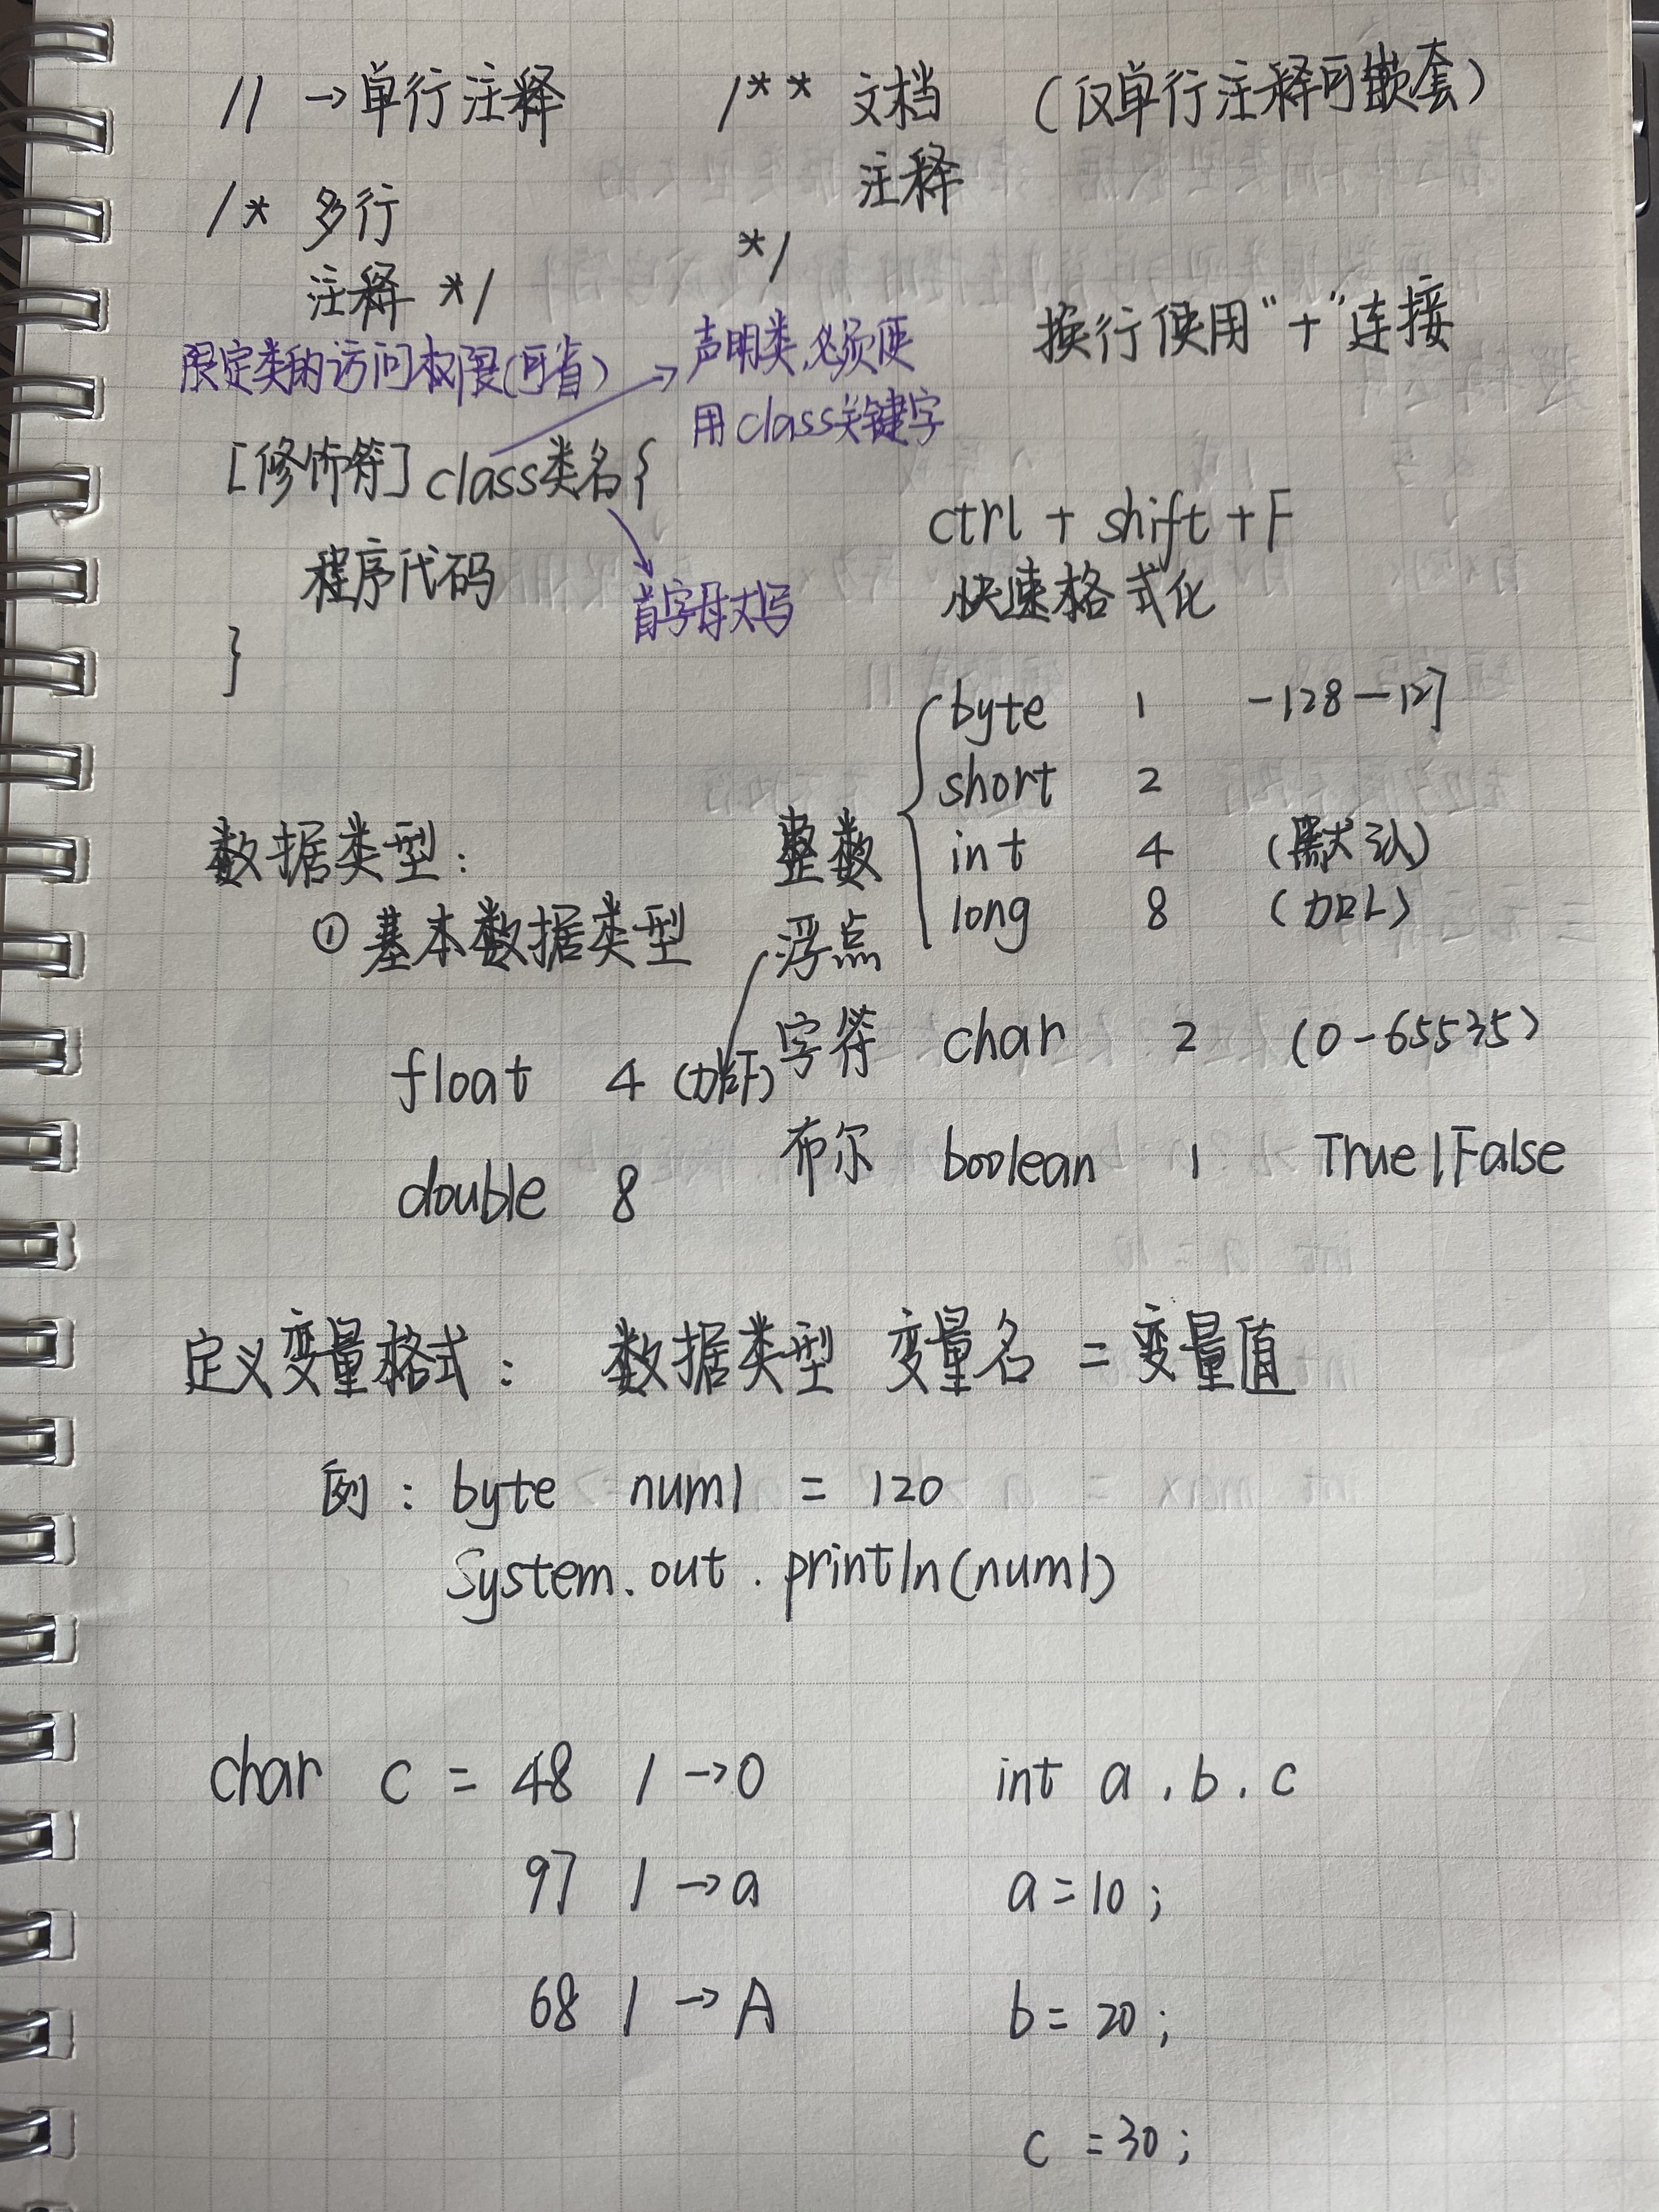 // →单行注释 /** 文档 (仅单行注释可嵌套)
注释
/* 多行
*/
注释 */
换行使用“+”连接
限定类的访问权限(可省)
声明类,必须使
用class关键字
[修饰符] class类名{
ctrl + shift + F
程序代码
首字母大写
快速格式化
}
byte 1 -128-127
short 2
数据类型:
整数
int 4 (默认)
long 8 (加L)
① 基本数据类型
浮点
字符 char 2 (0-65535)
float 4 (加F)
布尔 boolean 1 True|False
double 8
定义变量格式: 数据类型 变量名 = 变量值
例: byte num1 = 120
System.out.println(num1)
char c = 48 / →0
int a,b,c
97 / →a
a=10;
68 / → A
b= 20;
c =30;